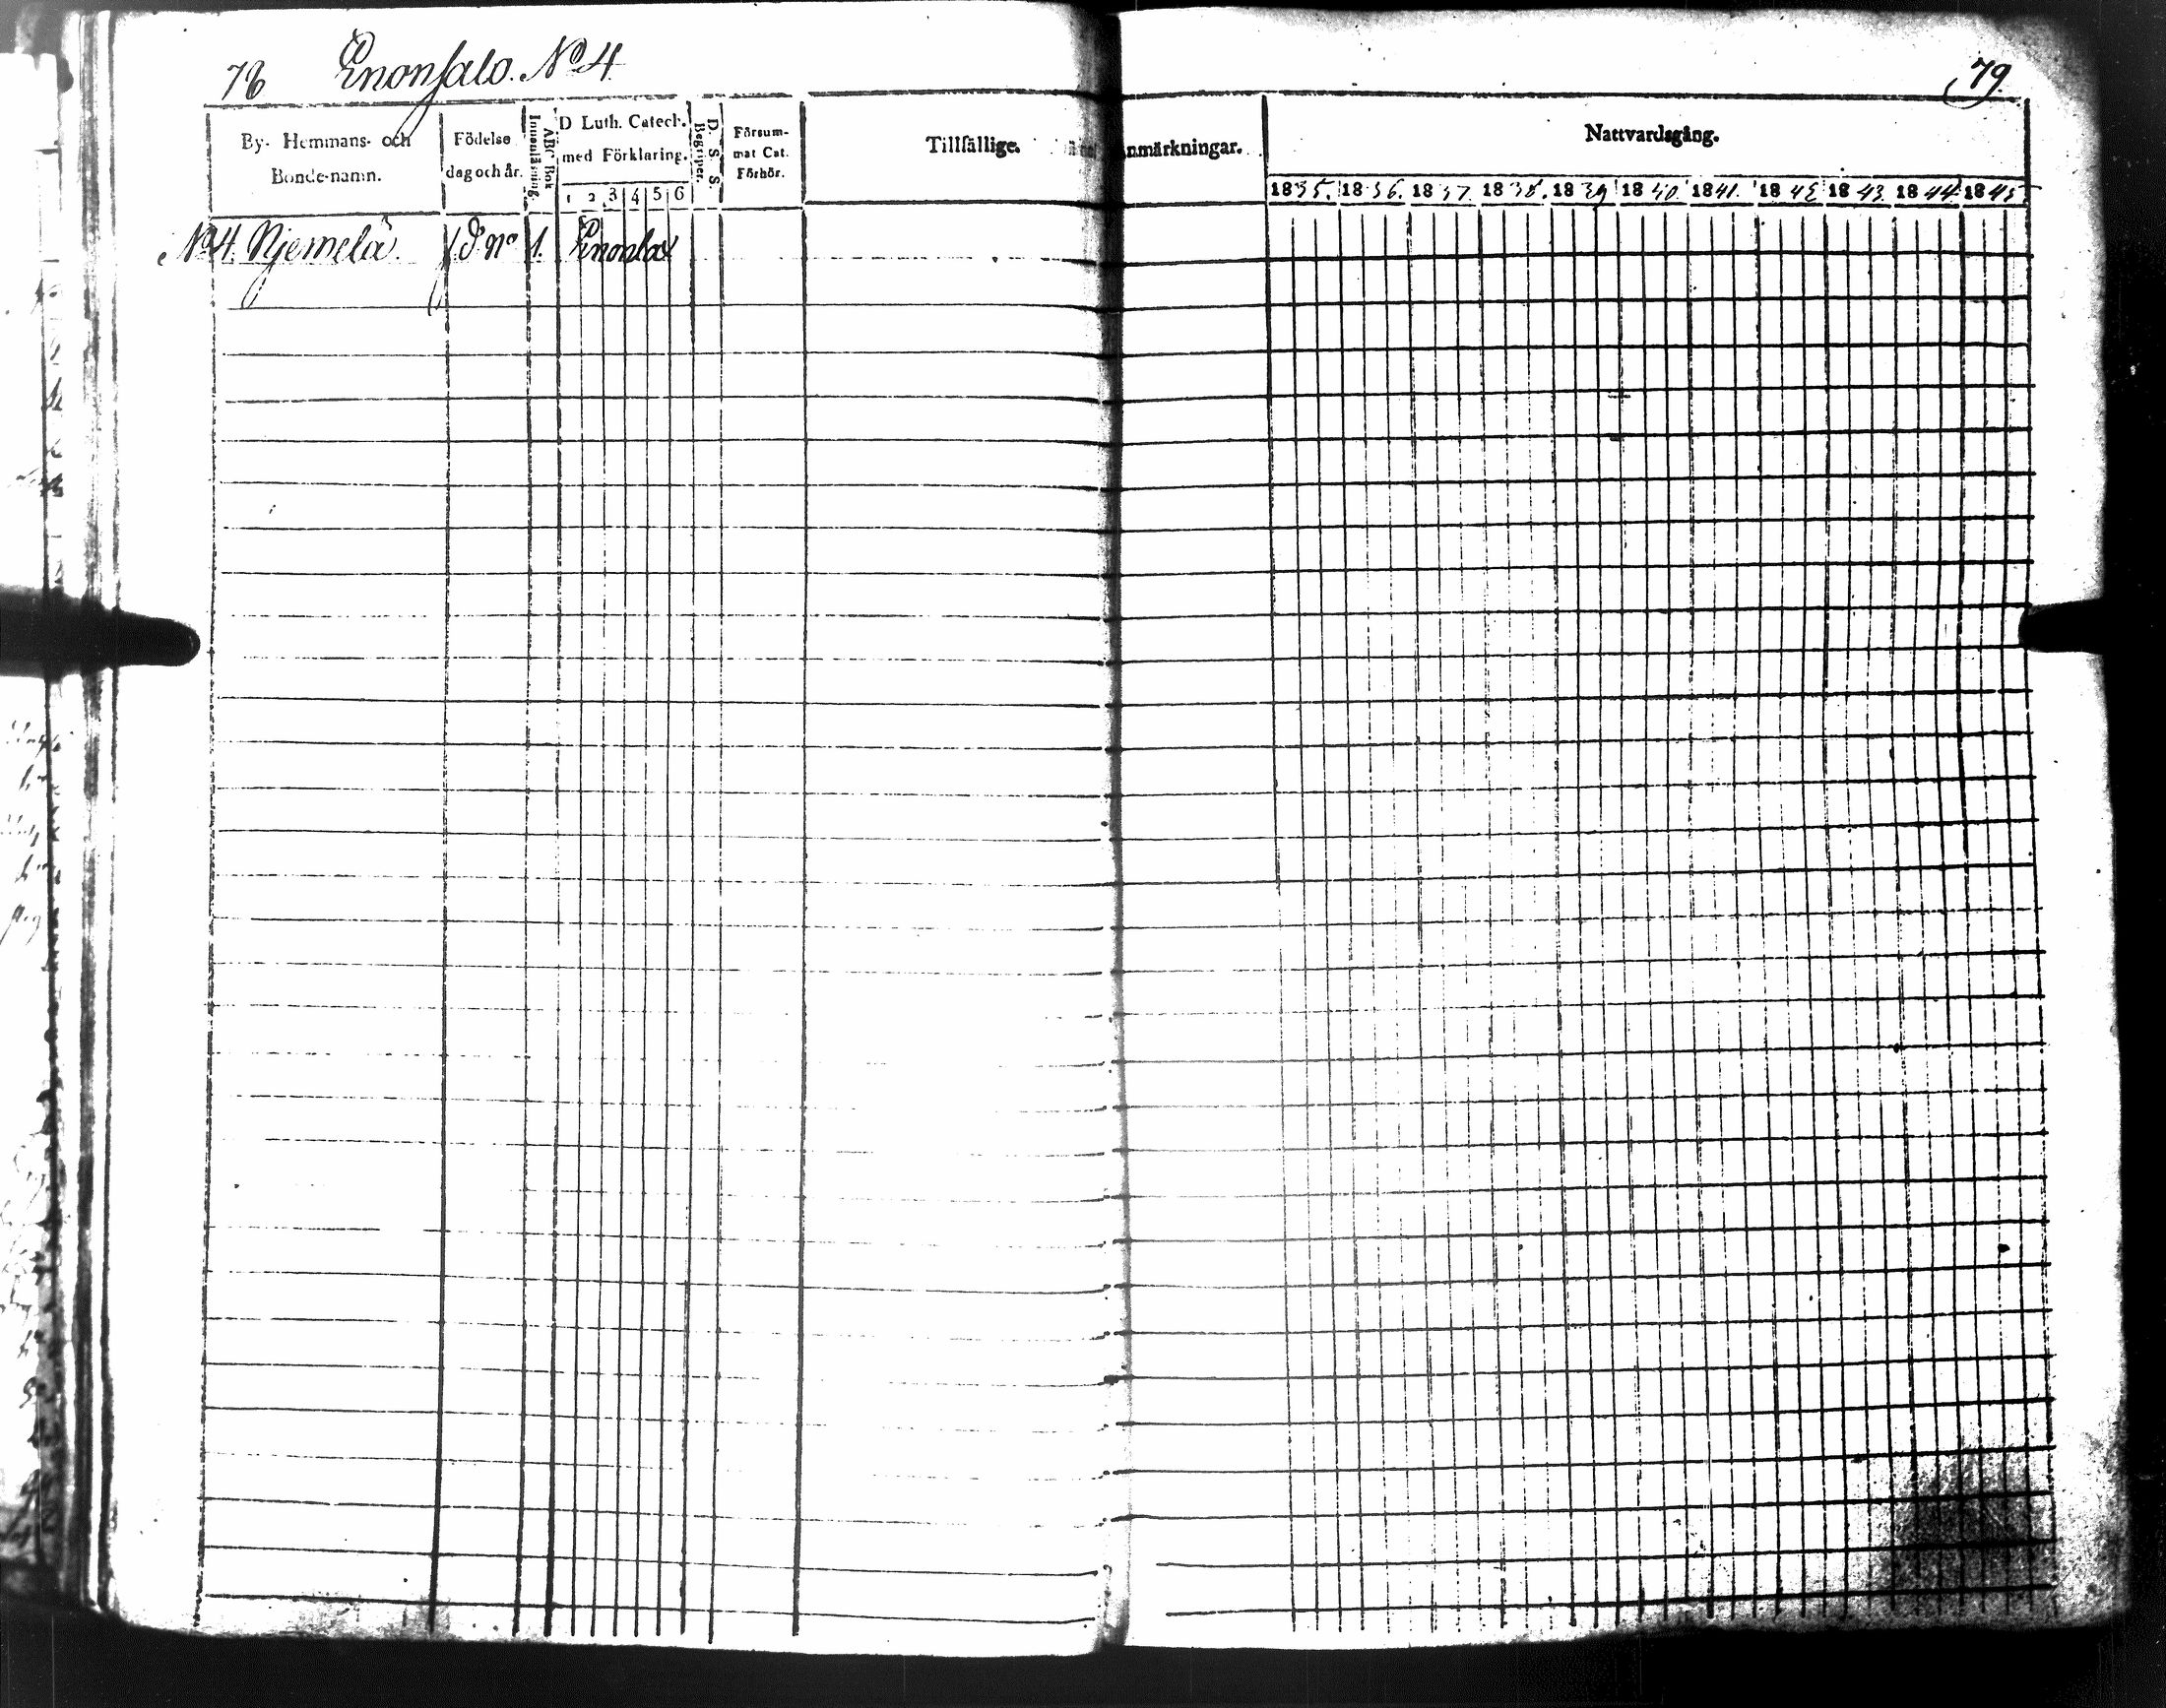 78 Enonsalo. No 4
79.
By- Hemmans- och Bonde-namn.
Födelse dag och år.
Innanläsning.
ABC Bok
D Luth. Catech. med Förklaring.
1 2 3 4 5 6
D. S. S. Begriper.
Försum- mat Cat. Förhör.
Tillfällige Anmärkningar.
Nattvardsgång.
1835. 1836. 1837. 1838. 1839 1840. 1841. 1842 1843. 1844. 1845.
No 4. Njemelä. No 1. Enonlax